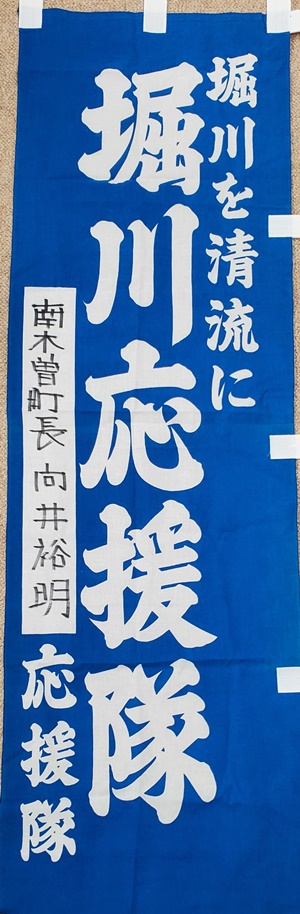 堀川を清流に
堀川応援隊
南木曽町長 向井裕明 応援隊